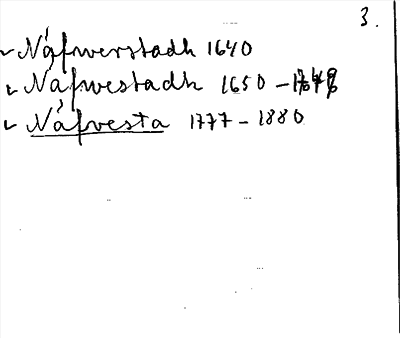 3.
Nåfwerstadh 1640
Nåfwestadh 1650 –
Nåfvesta 1777 – 1880